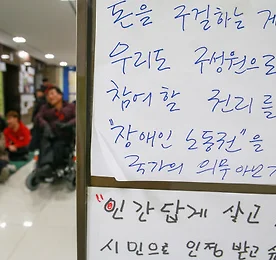 돈을 구걸하는 게
우리도 구성원으로
참여할 권리를
"장애인 노동권"을
국가의 의무 아닌가
"인간답게 살고
시민으로 인정 받고